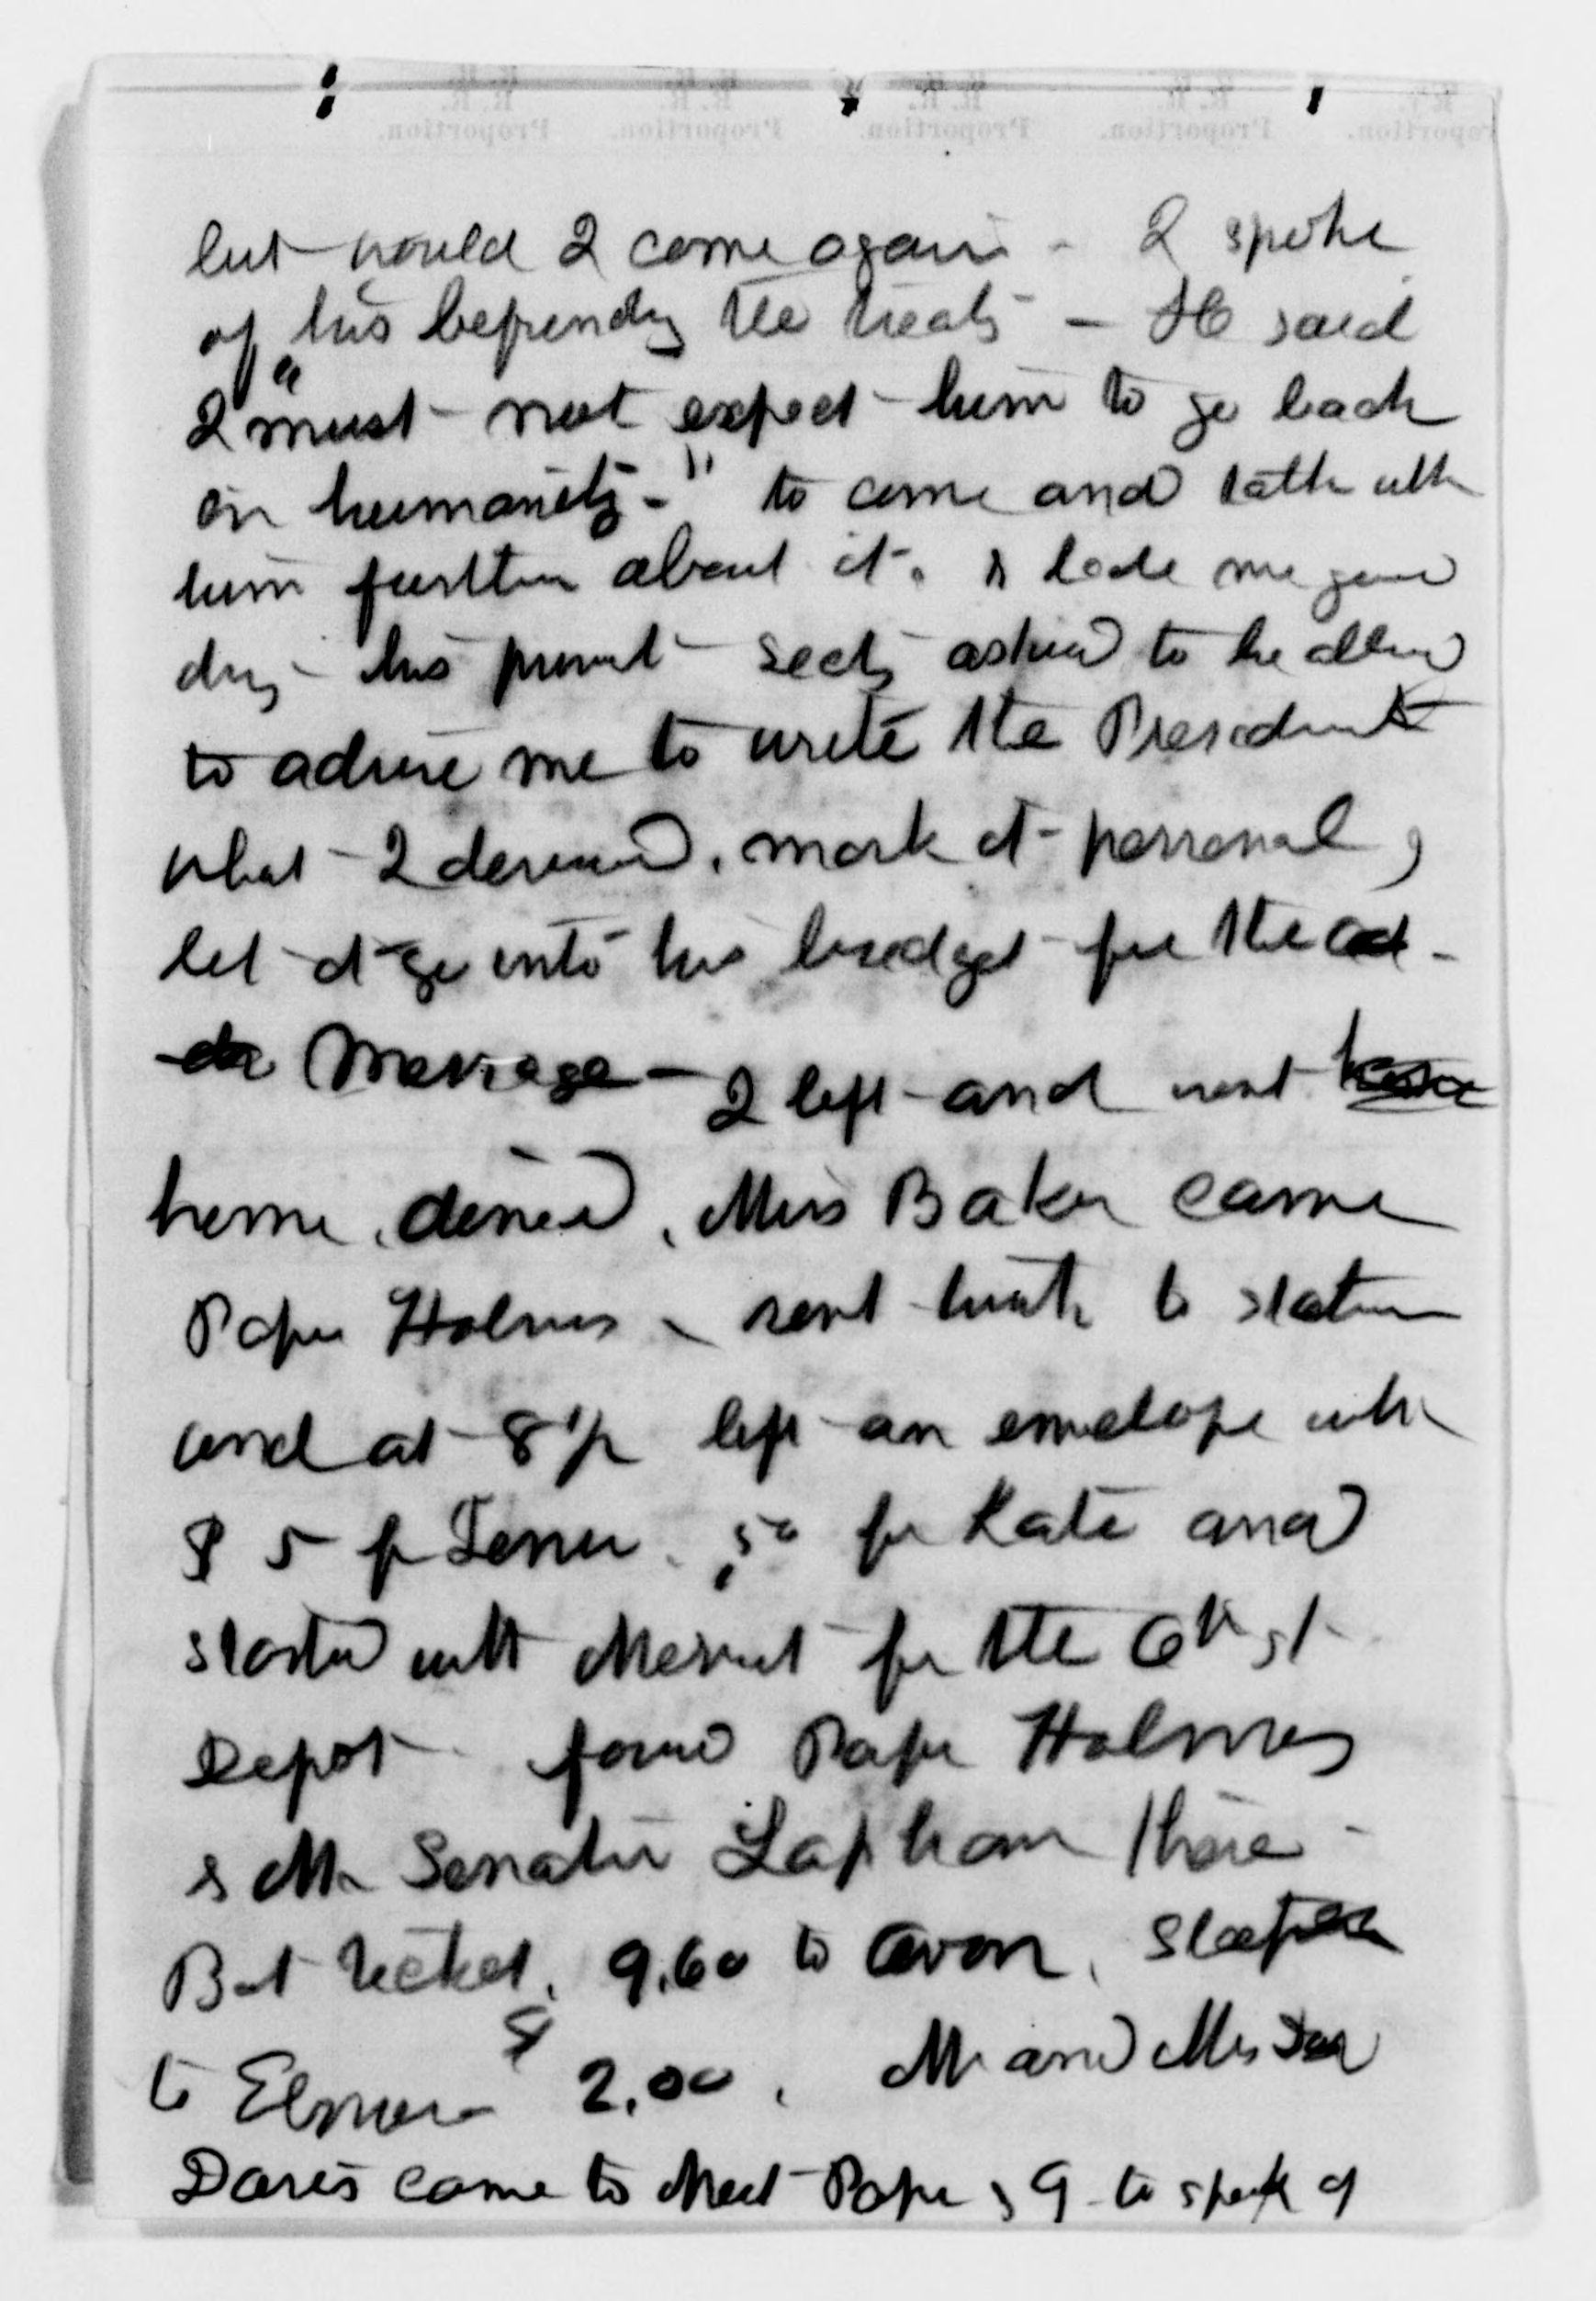 R.R. Proportion. R.R. Proportion. R.R. Proportion. R.R. Proportion. R.R. Proportion.
but would I come again - I spoke
of his befriending the treaty - He said
I "must not expect him to go back
on humanity -" to come and talk with
him further about it. & bade me good
day - his privat secty asked to be allowed
to advise me to write the President
what I desired, mark it personal,
let it go into his budget for the
Message - I left and went
home, dined, Miss Baker came
Papa Holmes, sent trunk to station
and at 8 1/2 left an envelope with
$ 5 for Lenu. 50 for Kate and
started with Merrit for the 6th st
Depot found Papa Holmes
& Mr Senator Lapham there -
Bot ticket, 9.60 to Avon, sleeper
to Elmira $ 2.00, Mr and Mrs
Davis came to Meet Papa & I to speak of